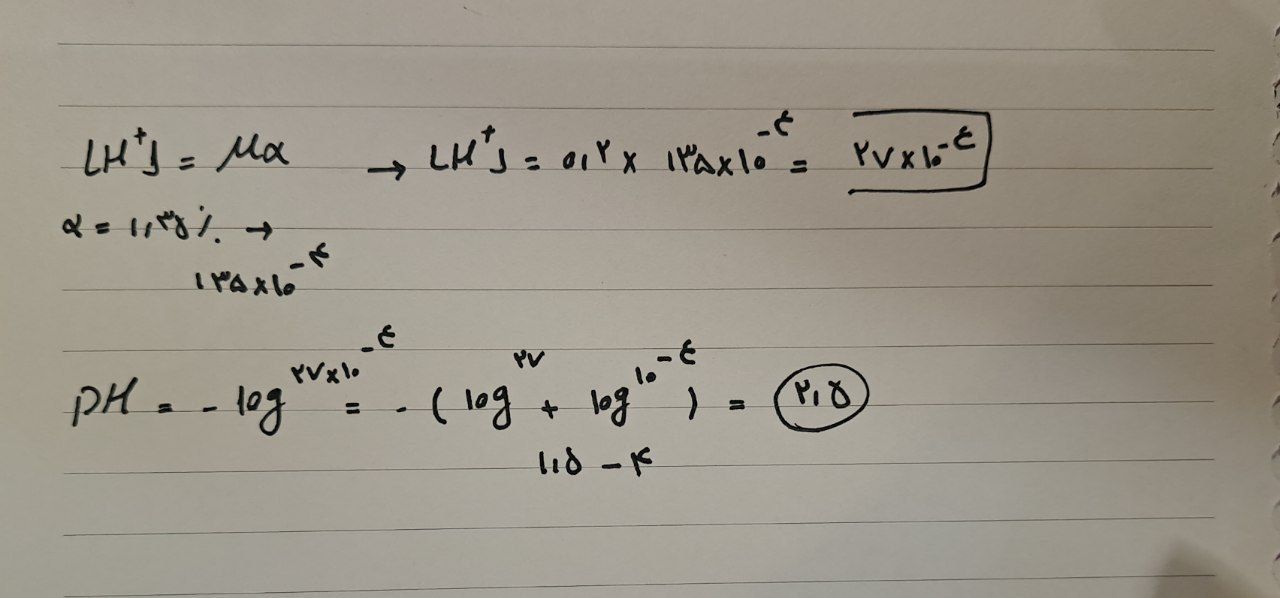 [H⁺] = Mα → [H⁺] = ۰٫۲ × ۱۳۵×۱۰⁻⁴ = ۲۷×۱۰⁻⁴
α = ۱٫۳۵٪ →
۱۳۵×۱۰⁻⁴
pH = - log ۲۷×۱۰⁻⁴ = - ( log ۲۷ + log ۱۰⁻⁴ ) = ۲٫۵
۱٫۵ - ۴